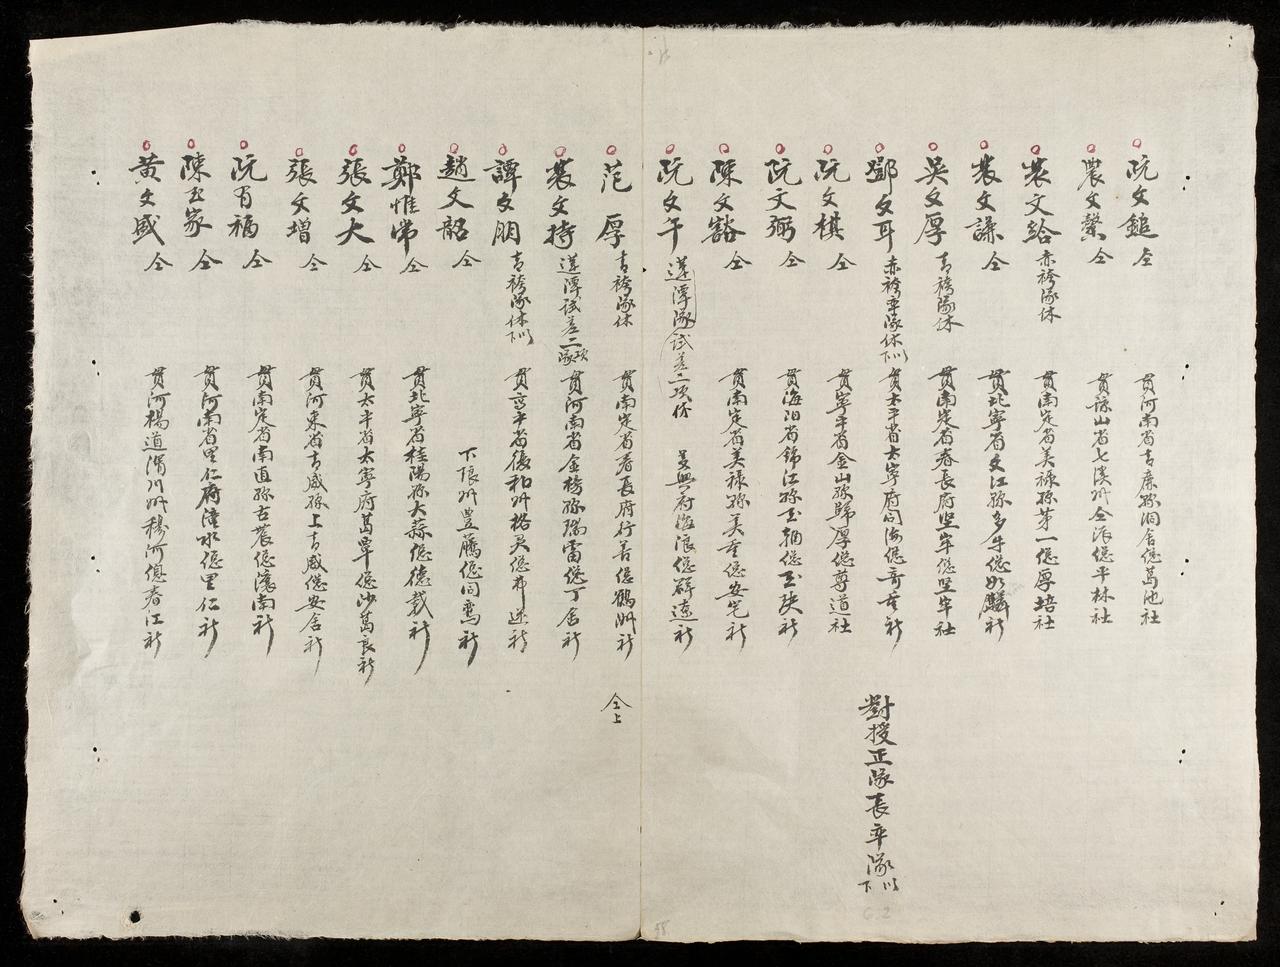 阮文鎚 仝 貫河南省古廉縣洞舍總葛池社
農文繫 仝 貫諒山省七溪州全派總平林社
裴文給 赤袴隊休 貫南定省美祿縣第一總厚培社
裴文謙 仝 貫北寧省文江縣多牛總如麟社
吳文厚 青袴隊休 貫南定省春長府堅牢總堅牢社
鄧文耳 赤袴率隊休以下 貫太平省太寧府同海總奇重社 對授正隊長率隊以下
阮文棋 仝 貫寧平省金山縣歸厚總尊道社
阮文弼 仝 貫海陽省錦江縣玉軸總玉陝社
陳文豁 仝 貫南定省美祿縣美重總安宅社
阮文午 蓮潭隊試差二項休 義興府海浪總僻遠社
范厚 青袴隊休 貫南定省春長府行善總鶴洲社 仝上
裴文持 蓮潭試差二項隊 貫河南省金榜縣瑞雷總丁舍社
譚文朋 青袴隊休以下 貫高平省復和州格灵總布逑社
趙文韶 仝 下琅州豊騰總同鸞社
鄭惟常 仝 貫北寧省桂陽縣大蒜總德載社
張文大 仝 貫太平省太寧府葛覃總沙葛良社
張文增 仝 貫河東省青威縣上青威總安舍社
阮有福 仝 貫南定省南直縣古農總瀼南社
陳玉家 仝 貫河南省里仁府潼水總里仁社
黃文盛 仝 貫河楊道渭川州穆河總春江社